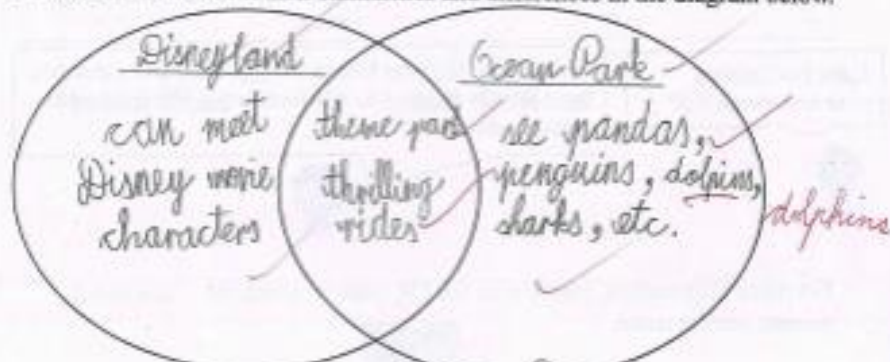 in the diagram below.
Disneyland
can meet
Disney movie
characters
theme park
thrilling
rides
Ocean Park
see pandas,
penguins, dolpins,
sharks, etc.
dolphins